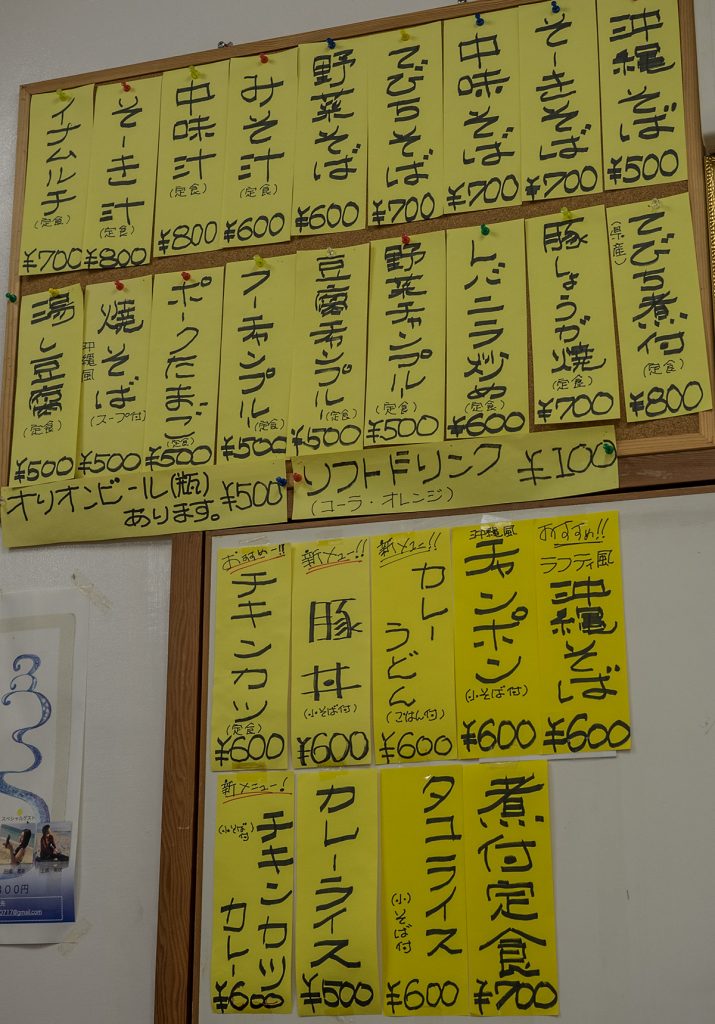 沖縄そば
¥500
そーきそば
¥700
中味そば
¥700
てびちそば
¥700
野菜そば
¥600
みそ汁
(定食)
¥600
中味汁
(定食)
¥800
そーき汁
(定食)
¥800
イナムルチ
(定食)
¥700
てびち煮付
(県産)
(定食)
¥800
豚しょうが焼
(定食)
¥700
んバニラ炒め
(定食)
¥600
野菜チャンプルー
(定食)
¥500
豆腐チャンプルー
(定食)
¥500
フーチャンプルー
(定食)
¥500
ポークたまご
(定食)
¥500
焼そば
沖縄風
(スープ付)
¥500
湯し豆腐
(定食)
¥500
オリオンビール(瓶)
あります。
¥500
ソフトドリンク ¥100
(コーラ・オレンジ)
おすすめ!!
ラフティ風
沖縄そば
¥600
沖縄風
チャンポン
(小そば付)
¥600
新メニュー!!
カレー
うどん
(ごはん付)
¥600
新メニュー!!
豚丼
(小そば付)
¥600
おすすめー!!
チキンカツ
(定食)
¥600
煮付定食
¥700
タコライス
(小)そば付
¥600
カレーライス
¥500
新メニュー!
チキンカツ
カレー
(小そば付)
¥600
スペシャルゲスト
0717@gmail.com